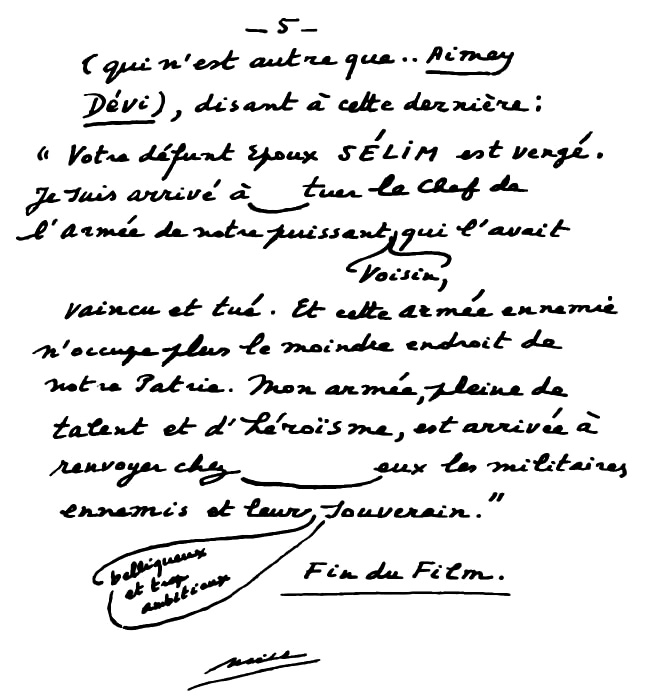 — 5 —
(qui n'est autre que.. Aimey
Dévi), disant à cette dernière:
“ Votre défunt Epoux SÉLIM est vengé.
Je suis arrivé à tuer le Chef de
l'Armée de notre puissant, qui l'avait
Voisin,
vaincu et tué. Et cette armée ennemie
n'occupe plus le moindre endroit de
notre Patrie. Mon armée, pleine de
talent et d'héroïsme, est arrivée à
renvoyer chez eux les militaires
ennemis et leur, Souverain.”
belliqueux
et trop
ambitieux
Fin du Film.